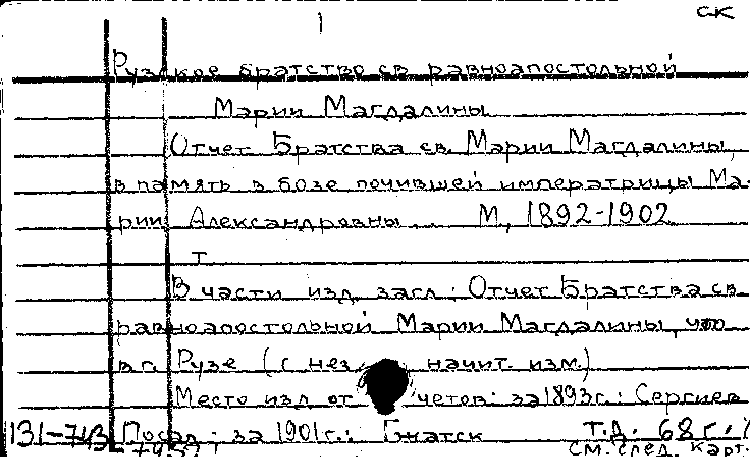 СК
1
Рузское братство св. равноапостольной
Марии Магдалины
Отчет Братства св. Марии Магдалины,
в память в бозе почившей императрицы Ма-
рии Александровны... М, 1892-1902
Т
В части изд. загл.: Отчет Братства св.
равноапостольной Марии Магдалины, что
в г. Рузе (с нез начит. изм.)
Место изд. от четов: за 1893г.: Сергиев
131-743 Посад; за 1901г.: Гжатск т.д. 68 г.
см. след. карт.